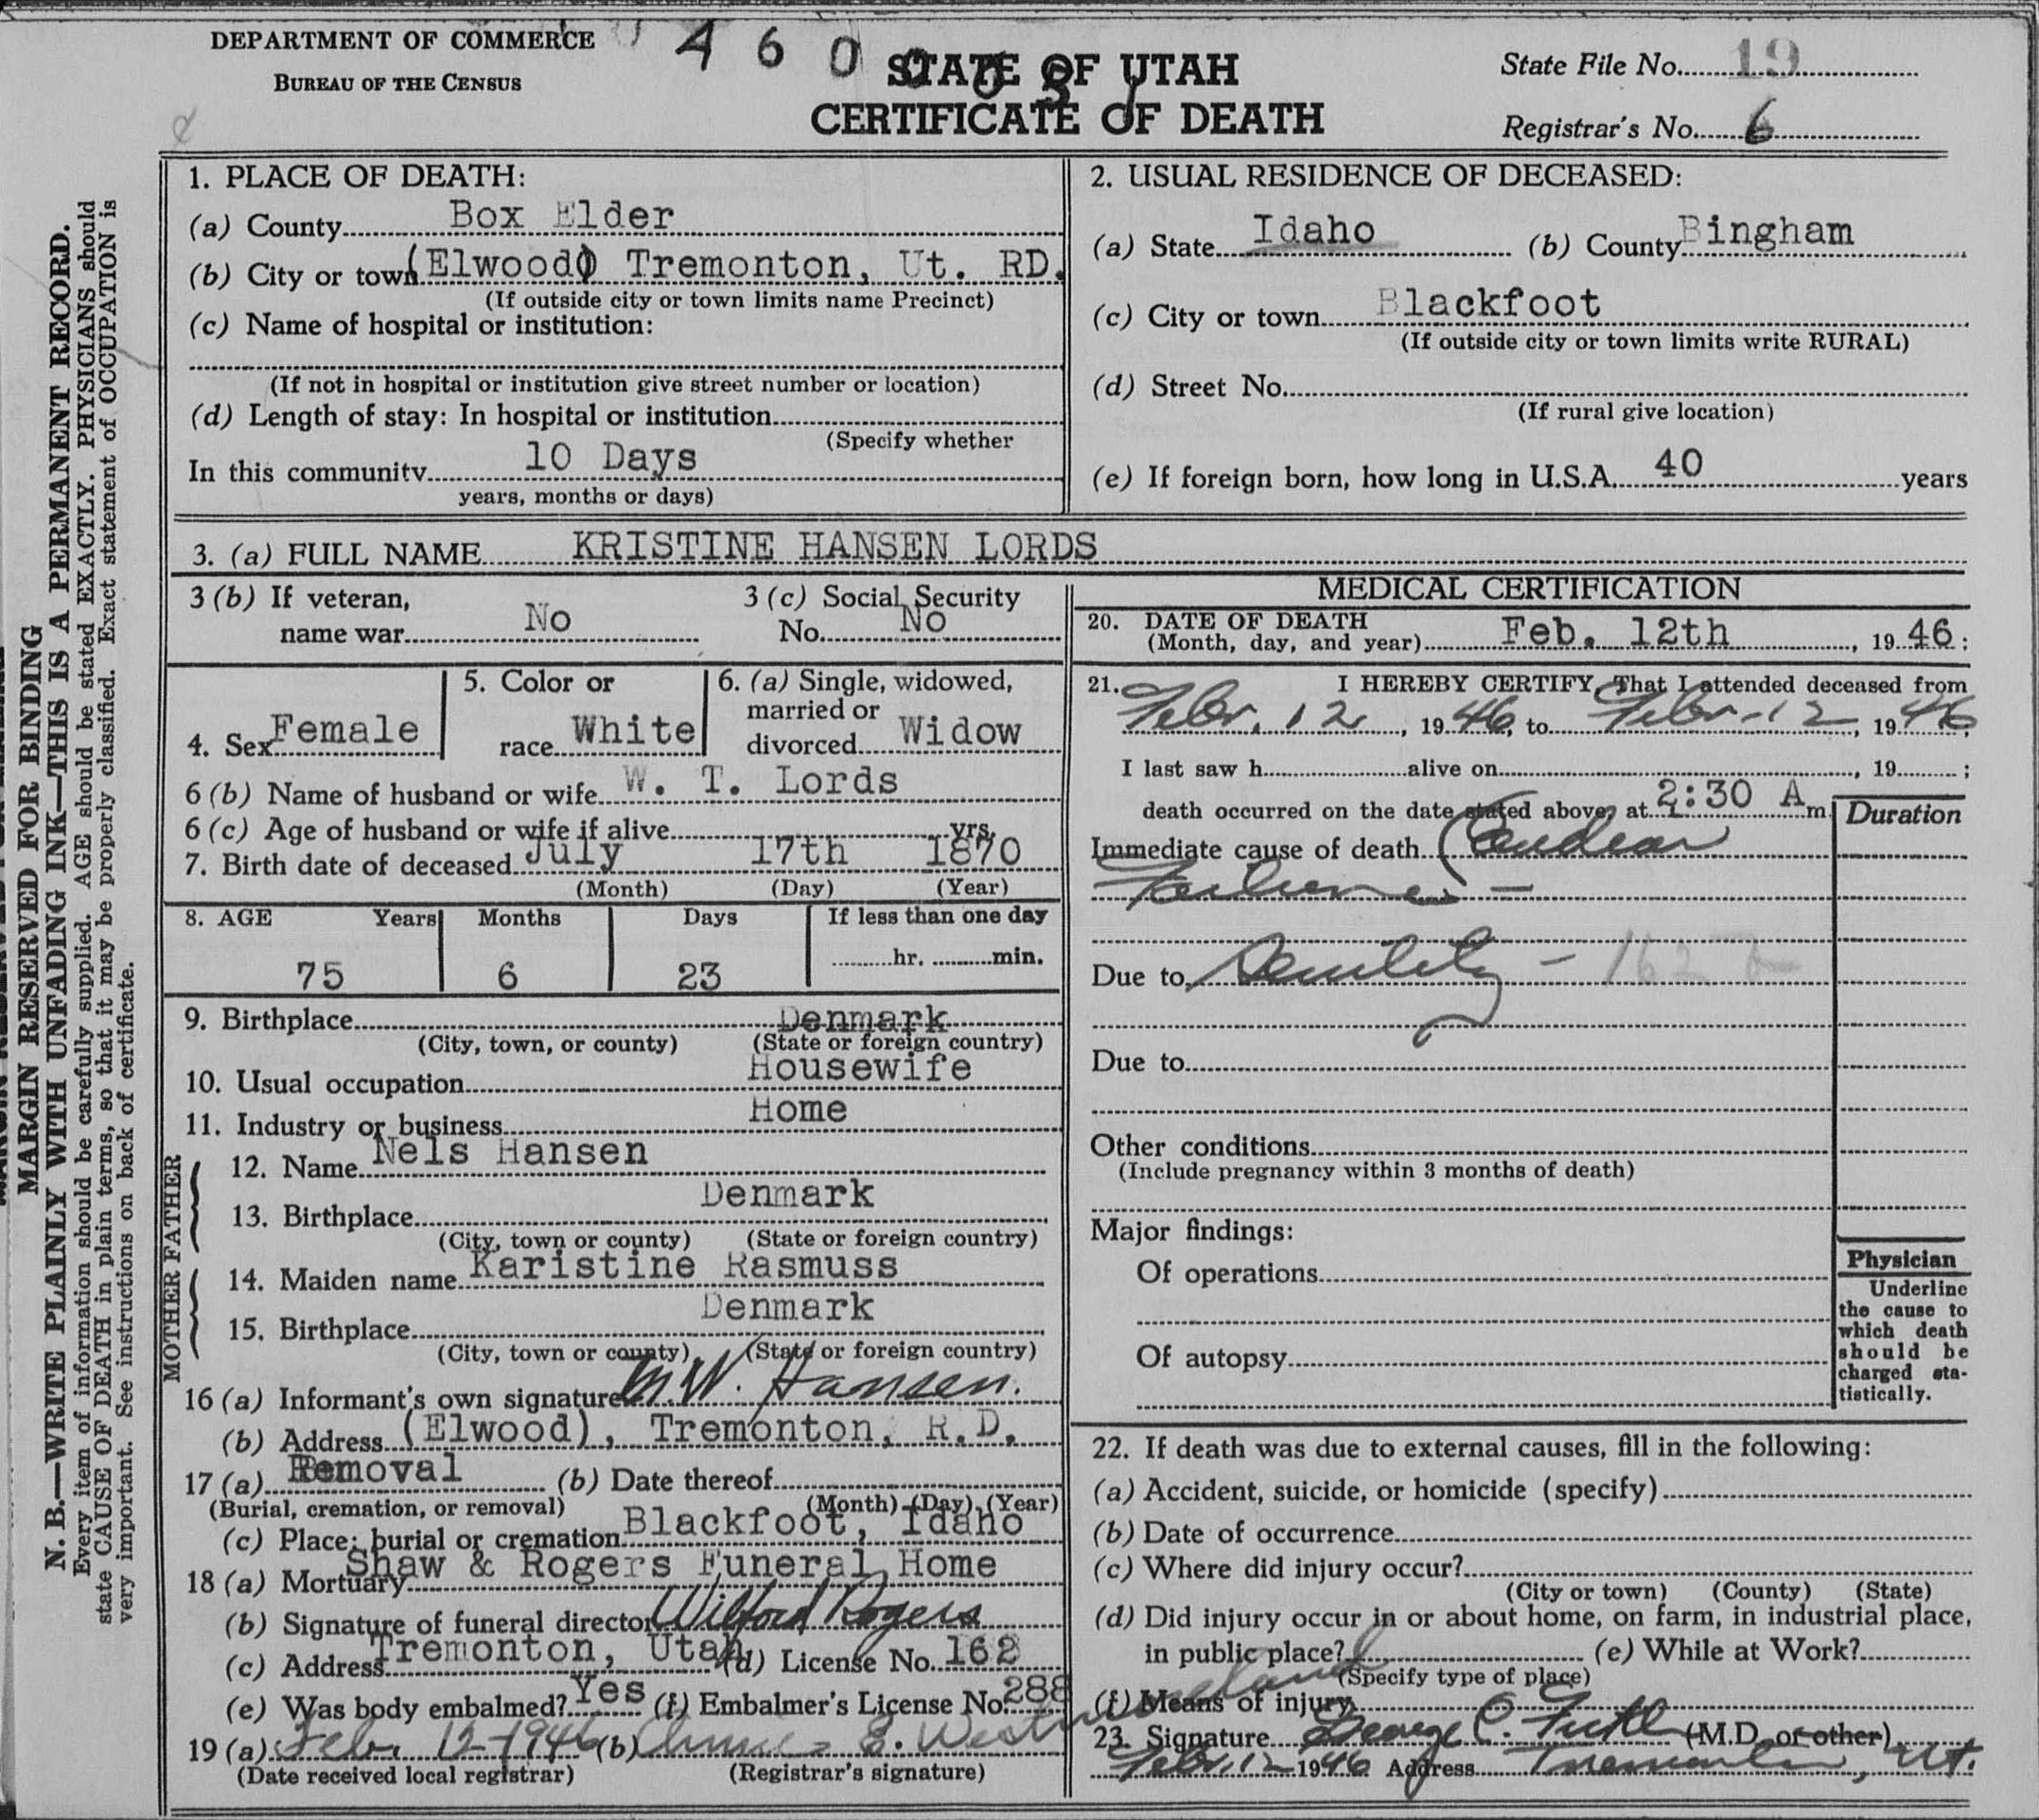 DEPARTMENT OF COMMERCE
BUREAU OF THE CENSUS
4 6 0
STATE OF UTAH
CERTIFICATE OF DEATH
State File No. 19
Registrar's No. 6
MARGIN RESERVED FOR BINDING
N. B.—WRITE PLAINLY WITH UNFADING INK—THIS IS A PERMANENT RECORD.
Every item of information should be carefully supplied. AGE should be stated EXACTLY. PHYSICIANS should
state CAUSE OF DEATH in plain terms, so that it may be properly classified. Exact statement of OCCUPATION is
very important. See instructions on back of certificate.
1. PLACE OF DEATH:
(a) County Box Elder
(b) City or town (Elwood) Tremonton, Ut. RD.
(If outside city or town limits name Precinct)
(c) Name of hospital or institution:
(If not in hospital or institution give street number or location)
(d) Length of stay: In hospital or institution
(Specify whether
In this community 10 Days
years, months or days)
2. USUAL RESIDENCE OF DECEASED:
(a) State Idaho (b) County Bingham
(c) City or town Blackfoot
(If outside city or town limits write RURAL)
(d) Street No.
(If rural give location)
(e) If foreign born, how long in U.S.A. 40 years
3. (a) FULL NAME KRISTINE HANSEN LORDS
3 (b) If veteran,
name war No
3 (c) Social Security
No. No
4. Sex Female
5. Color or
race White
6. (a) Single, widowed,
married or
divorced Widow
6 (b) Name of husband or wife W. T. Lords
6 (c) Age of husband or wife if alive yrs.
7. Birth date of deceased July 17th 1870
(Month) (Day) (Year)
8. AGE Years Months Days If less than one day
75 6 23 hr. min.
9. Birthplace Denmark
(City, town, or county) (State or foreign country)
10. Usual occupation Housewife
11. Industry or business Home
FATHER
12. Name Nels Hansen
13. Birthplace Denmark
(City, town or county) (State or foreign country)
MOTHER
14. Maiden name Karistine Rasmuss
15. Birthplace Denmark
(City, town or county) (State or foreign country)
16 (a) Informant's own signature M.W. Hansen.
(b) Address (Elwood), Tremonton, R.D.
17 (a) Removal (b) Date thereof
(Burial, cremation, or removal) (Month) (Day) (Year)
(c) Place: burial or cremation Blackfoot, Idaho
18 (a) Mortuary Shaw & Rogers Funeral Home
(b) Signature of funeral director Wilford Rogers
(c) Address Tremonton, Utah (d) License No. 162
(e) Was body embalmed? Yes (f) Embalmer's License No. 288
19 (a) Feb. 12-1946 (b) E.
(Date received local registrar) (Registrar's signature)
MEDICAL CERTIFICATION
20. DATE OF DEATH
(Month, day, and year) Feb. 12th, 1946;
21. I HEREBY CERTIFY, That I attended deceased from
Febr. 12, 1946, to Febr-12, 1946;
I last saw h alive on , 19 ;
death occurred on the date stated above, at 2:30 A m.
Duration
Immediate cause of death Cardiac
Failure -
Due to Senility - 162
Due to
Other conditions
(Include pregnancy within 3 months of death)
Major findings:
Of operations
Of autopsy
Physician
Underline
the cause to
which death
should be
charged sta-
tistically.
22. If death was due to external causes, fill in the following:
(a) Accident, suicide, or homicide (specify)
(b) Date of occurrence
(c) Where did injury occur?
(City or town) (County) (State)
(d) Did injury occur in or about home, on farm, in industrial place,
in public place? (e) While at Work?
(Specify type of place)
(f) Means of injury
23. Signature George C. (M.D. or other)
Febr. 12 1946 Address Tremonton, Ut.